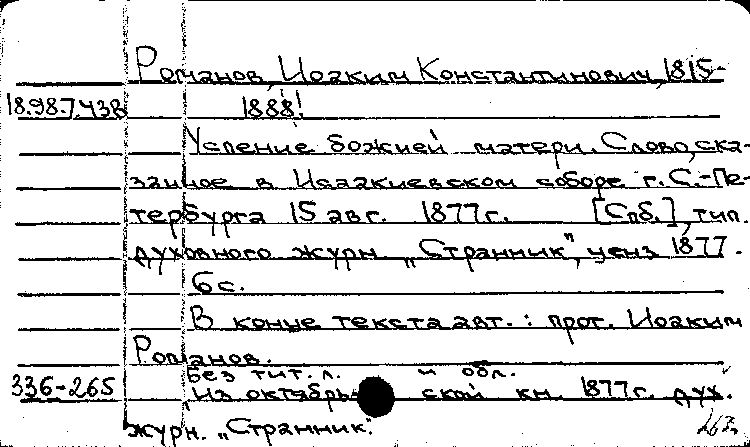 Романов, Иоаким Константинович, 1815-
18.98.7.438 1888!
Успение божией матери. Слово, ска-
занное в Исаакиевском соборе г. С.-Пе-
тербурга 15 авг. 1877 г. [Спб.], тип.
духовного журн. „Странник", ценз 1877.
6 с.
В конце текста авт.: прот. Иоаким
Романов.
Без тит. л. и обл.
336-265 Из октябрьской кн. 1877 г. дух.
журн. „Странник".